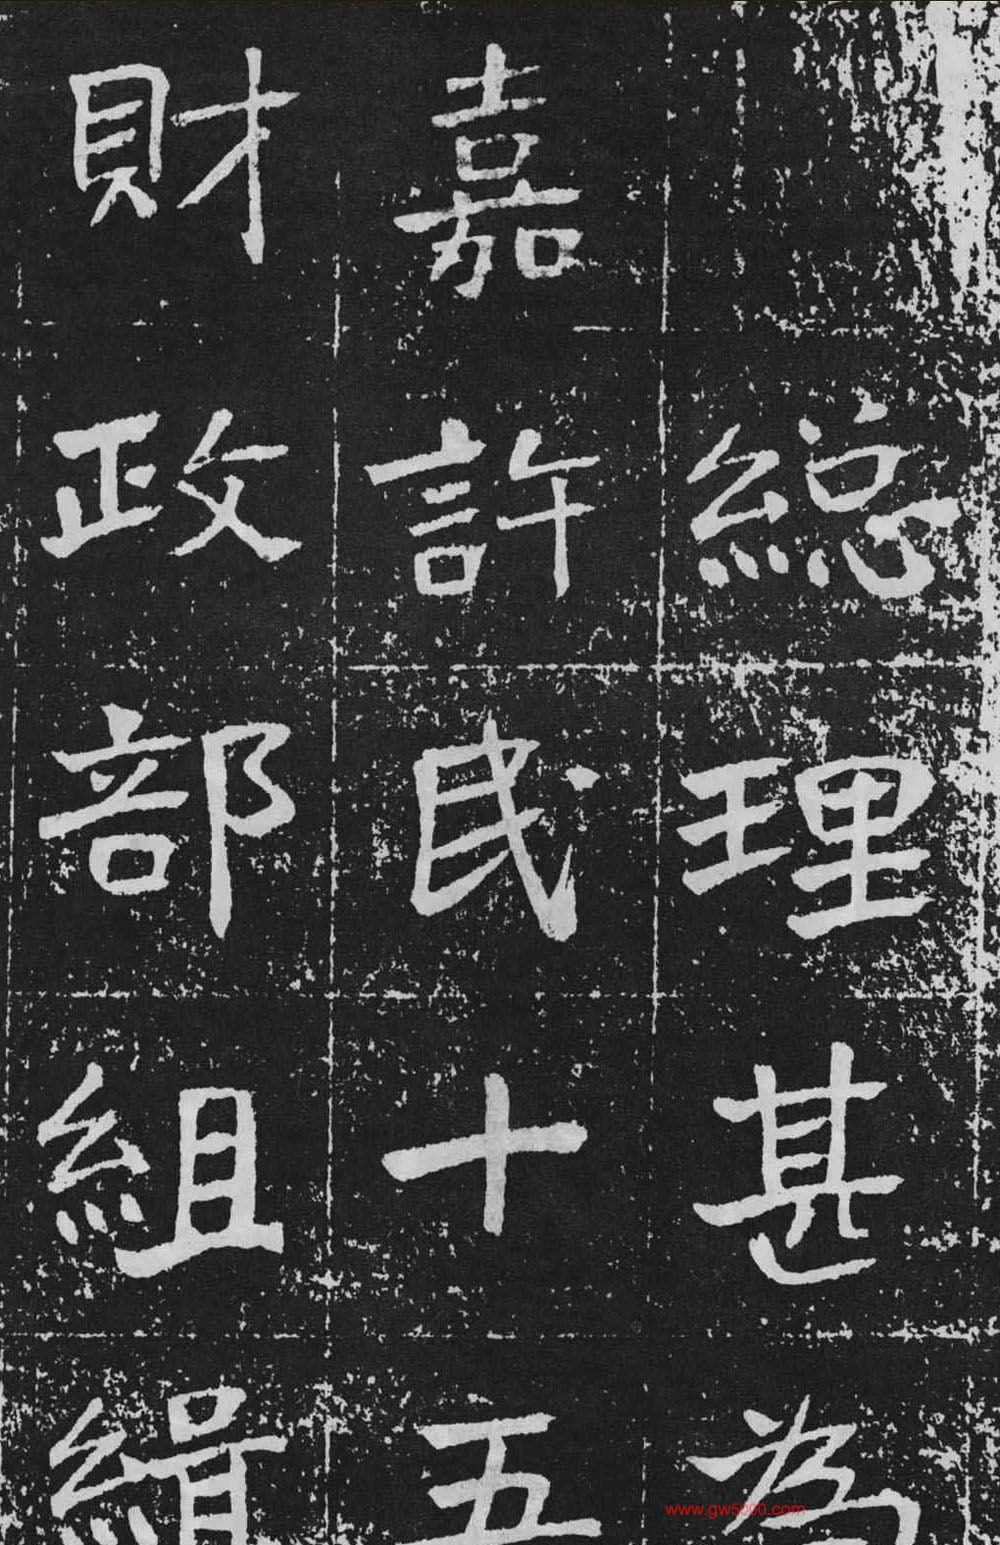 總理甚為
嘉許民十五
財政部組緝
www.gw5000.com